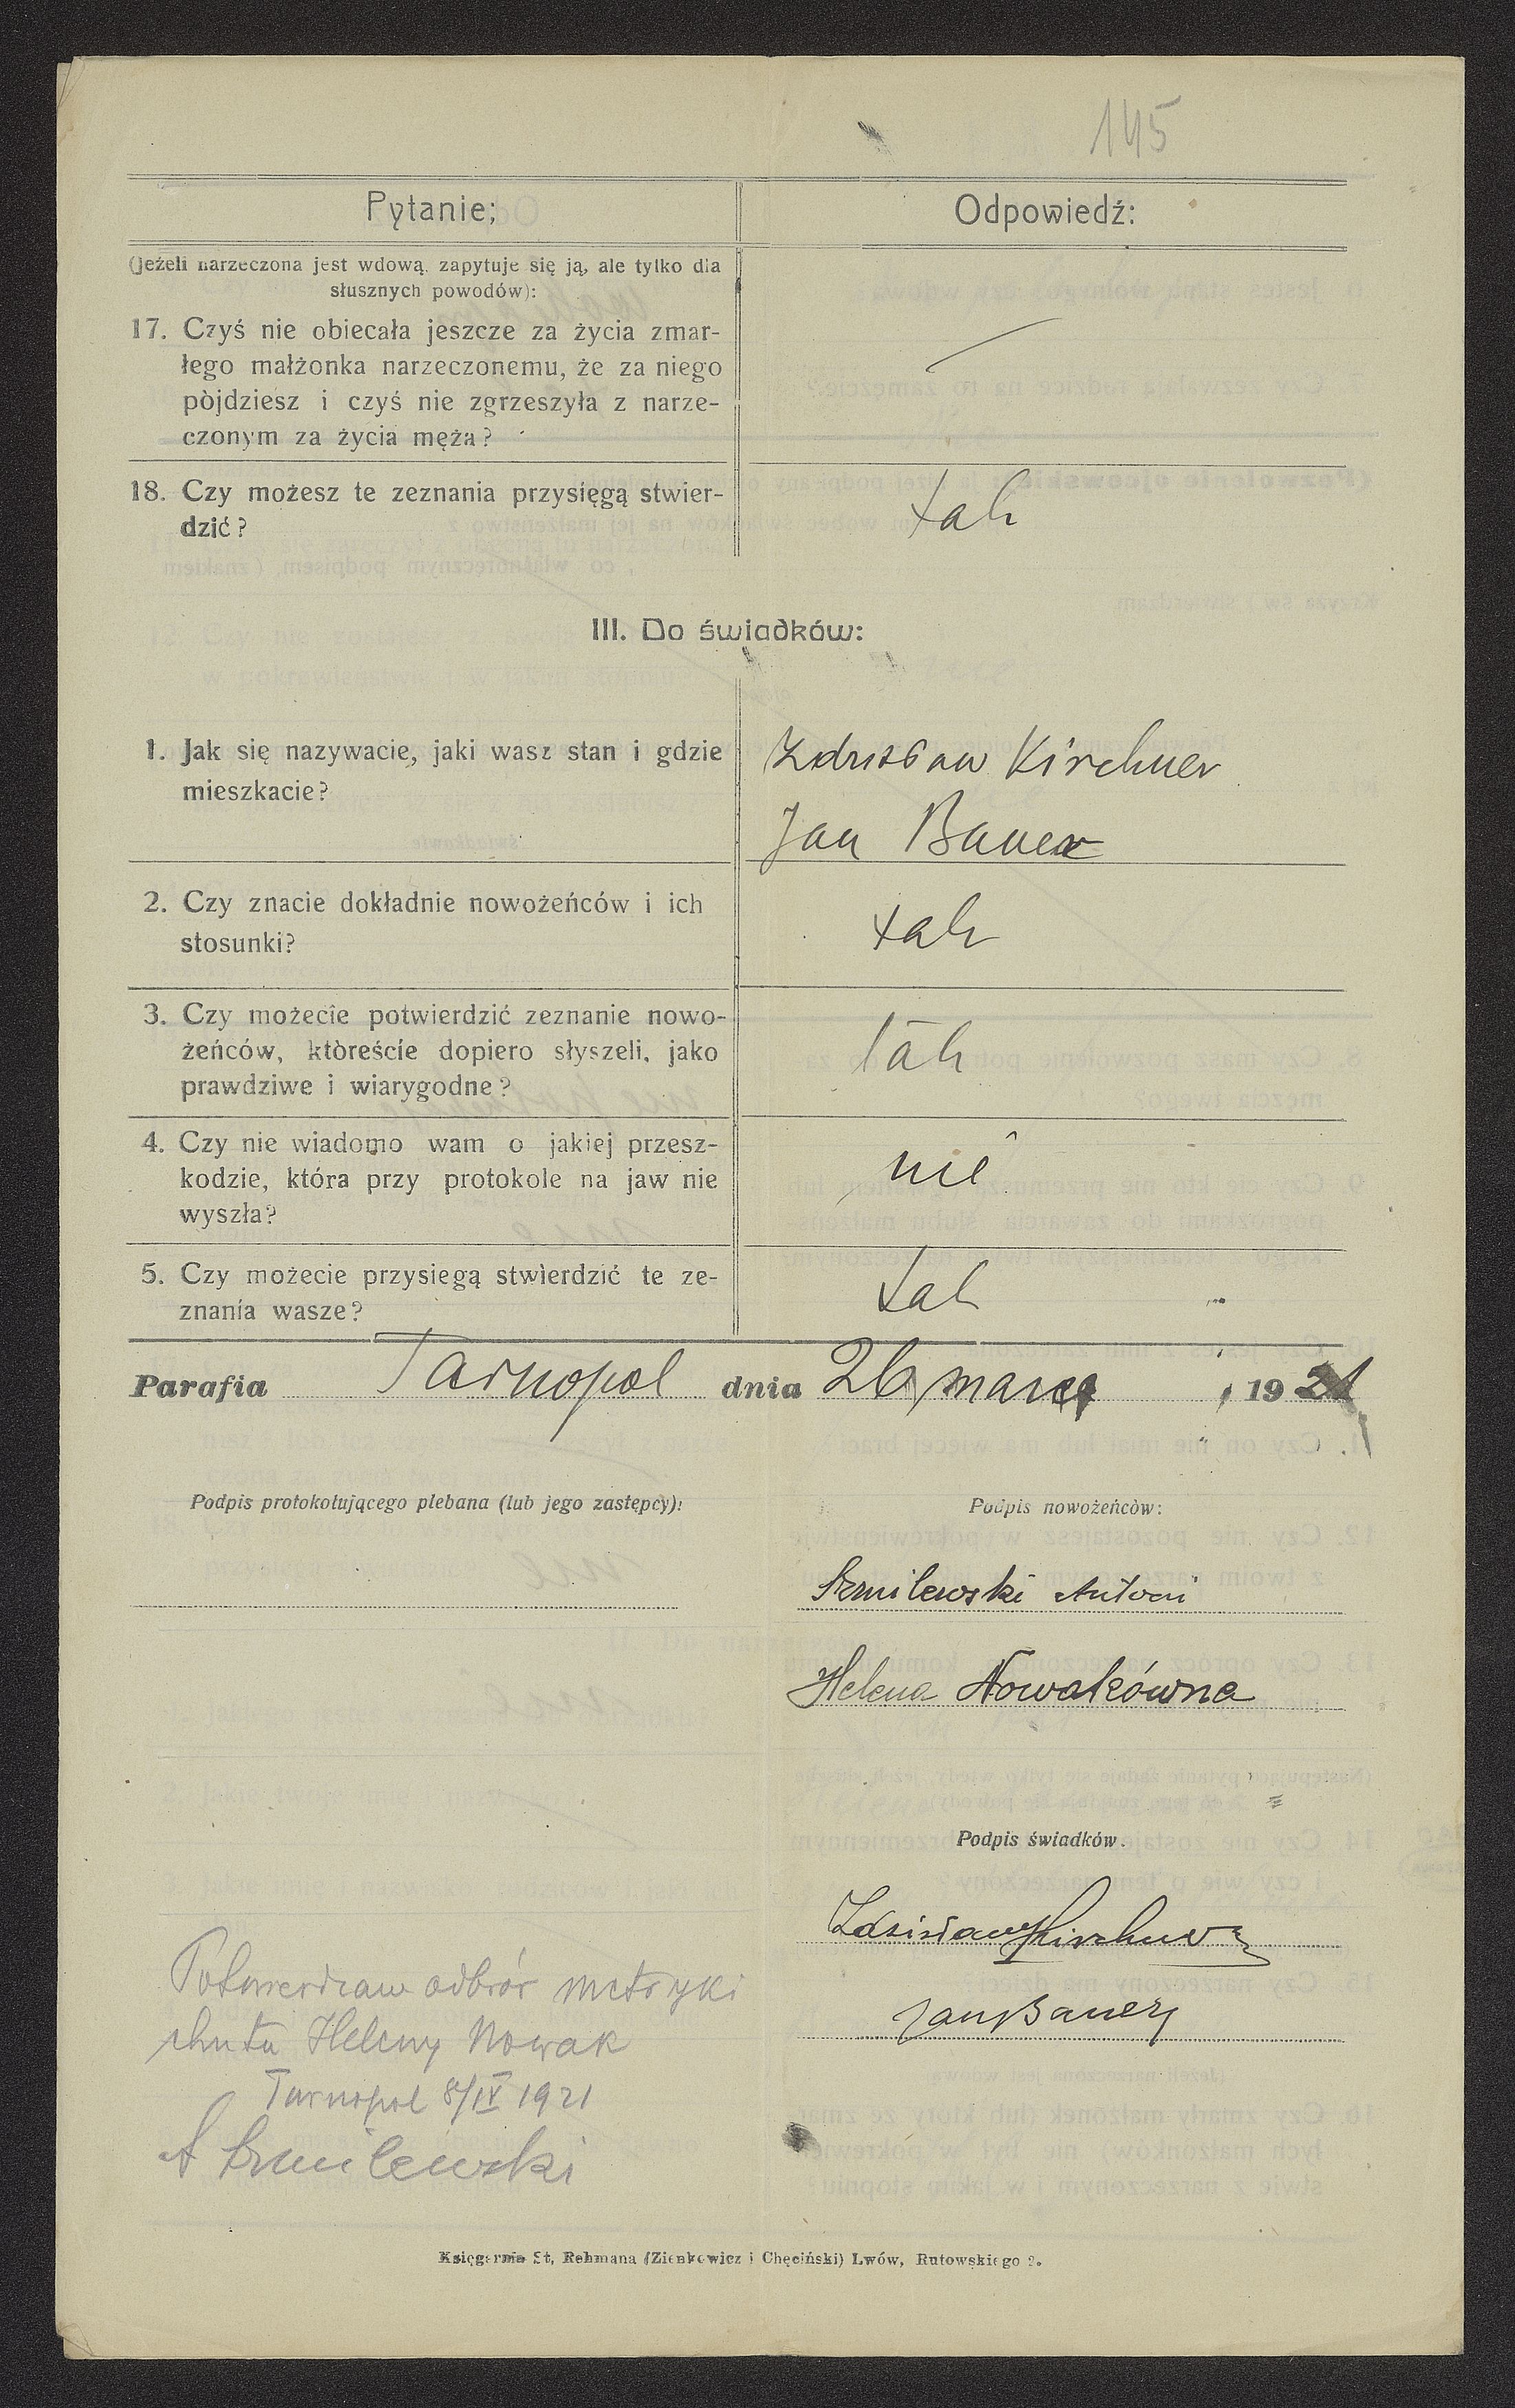 145
Pytanie;
Odpowiedź:
(jeżeli narzeczona jest wdową, zapytuje się ją, ale tylko dla
słusznych powodów):
17. Czyś nie obiecała jeszcze za życia zmar-
łego małżonka narzeczonemu, że za niego
pòjdziesz i czyś nie zgrzeszyła z narze-
czonym za życia męża?
18. Czy możesz te zeznania przysięgą stwier-
dzić?
tak
III. Do świadków:
1. Jak się nazywacie, jaki wasz stan i gdzie
mieszkacie?
Zdzisław Kirchner
Jan Bauer
2. Czy znacie dokładnie nowożeńców i ich
stosunki?
tak
3. Czy możecie potwierdzić zeznanie nowo-
żeńców, któreście dopiero słyszeli, jako
prawdziwe i wiarygodne?
tak
4. Czy nie wiadomo wam o jakiej przesz-
kodzie, która przy protokole na jaw nie
wyszła?
nie
5. Czy możecie przysiegą stwierdzić te ze-
znania wasze?
tak
Parafia Tarnopol dnia 26 marca 1921
Podpis protokołującego plebana (lub jego zastępcy):
Podpis nowożeńcòw:
Szmilewski Antoni
Helena Nowakówna
Podpis świadków.
Zdzisław Kirchner
Jan Bauer
Potwierdzam odbiór metryki
chrztu Heleny Nowak
Tarnopol 8/IV 1921
A Szmilewski
Księgarnia St. Rehmana (Zienkowicz i Chęciński) Lwów, Rutowskiego 2.